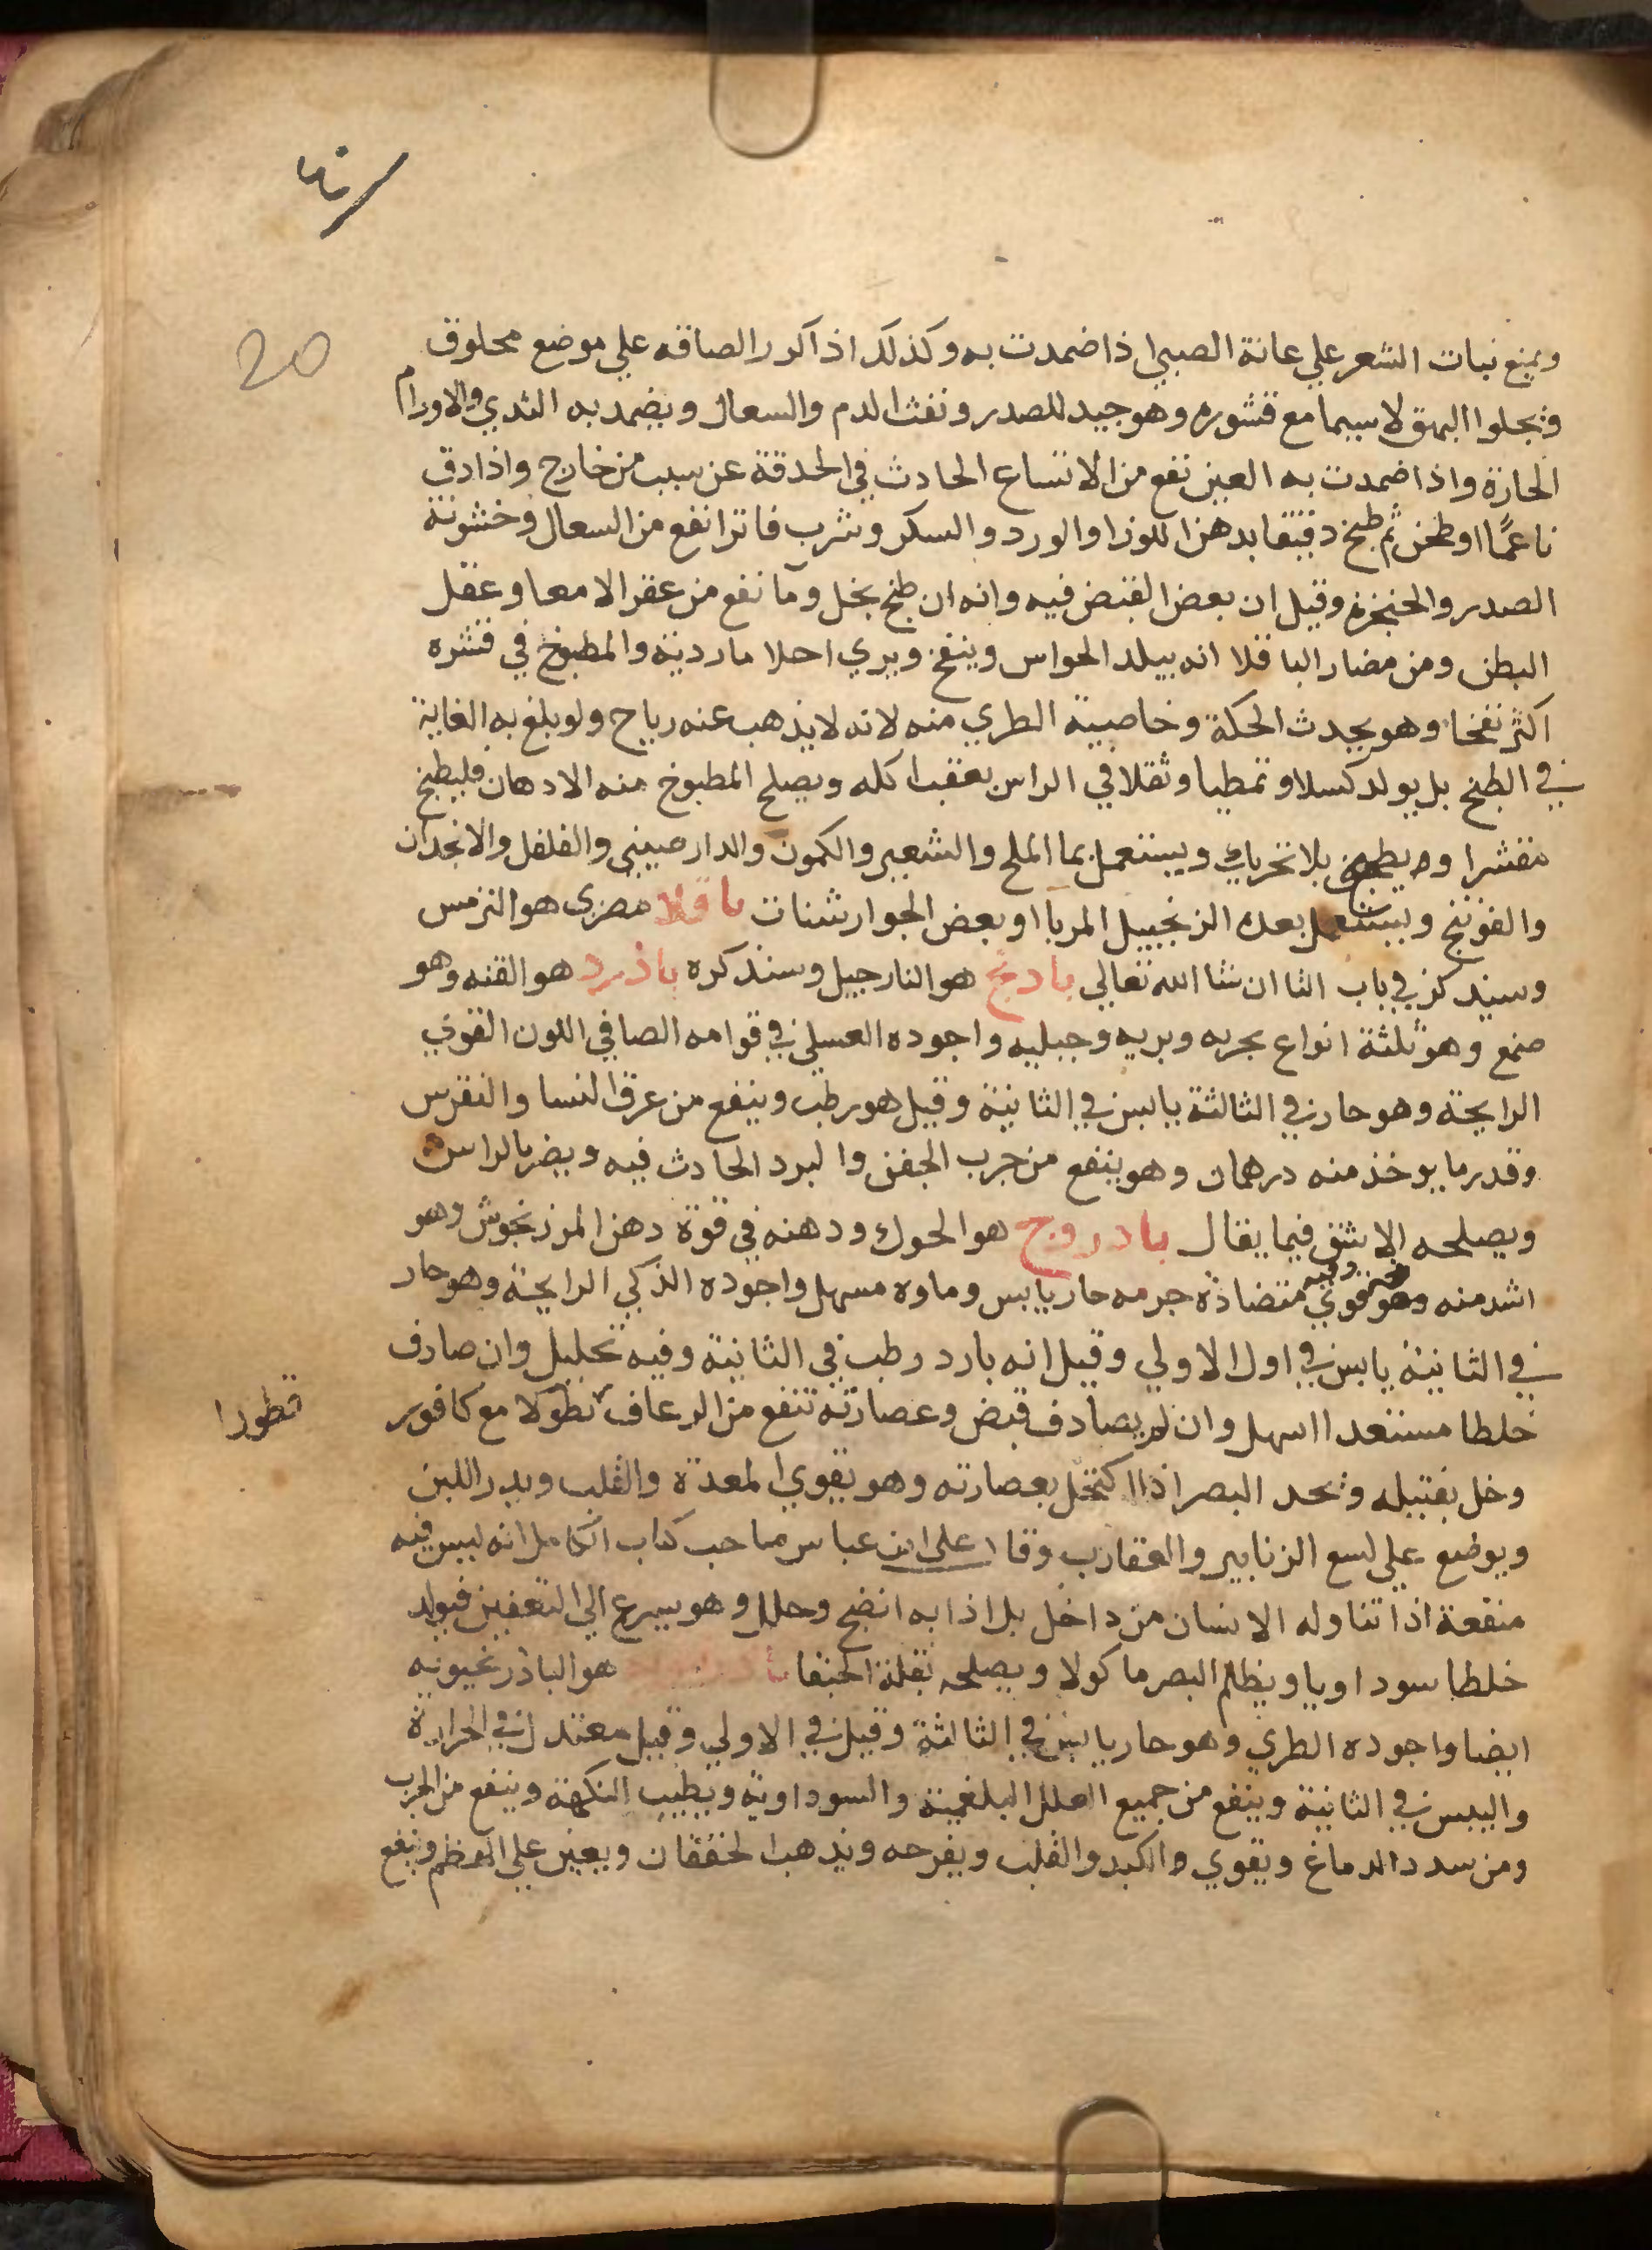 20
ويمنع نبات الشعر علي عانة الصبي اذا ضمدت به وكذلك اذا كرر الصاقه علي موضع محلوق
ويجلوا البهق لاسيما مع قشوره وهو جيد للصدر ونفث الدم والسعال ويضمد به الثدي والاورام
الحارة واذا ضمدت به العين نفع من الاتساع الحادث في الحدقة عن سبب من خارج واذا دق
ناعمًا او طحن ثم طبخ دقيقا بدهن اللوز او الورد والسكر وشرب فاترا نفع من السعال وخشونة
الصدر والحنجرة وقيل ان بعض القبض فيه وانه ان طبخ بخل وما نفع من عقر الامعا وعقل
البطن ومن مضار الباقلا انه يبلد الحواس وينفخ ويري احلاما ردية والمطبوخ في قشره
اكثر نفخا وهو يحدث الحكة وخاصية الطري منه لانه لا يذهب عنه رياح ولو بلغ به الغاية
في الطبخ بل يولد كسلا وتمطيا وثقلا في الراس بعقب اكله ويصلح المطبوخ منه الادهان فليطبخ
مقشرا ويطبخ بلا تحريك ويستعمل بما الملح والشعير والكمون والدارصيني والفلفل والانجدان
والفوتنج ويستعمل بعده الزنجبيل المربا او بعض الجوارشنات باقلا مصري هو الترمس
وسيذكر في باب التا ان شا الله تعالي بادنج هو النارجيل وسنذكره باذرد هو القنه وهو
صمغ وهو ثلثة انواع بحريه وبريه وجبليه واجوده العسلي في قوامه الصافي اللون القوي
الرايحة وهو حار في الثالثة يابس في الثانية وقيل هو رطب وينفع من عرق النسا والنقرس
وقدر ما يوخذ منه درهمان وهو ينفع من جرب الجفن والبرد الحادث فيه ويضر بالراس
ويصلحه الاشق فيما يقال بادروج هو الحوك ودهنه في قوة دهن المرزنجوش وهو
اشد منه وفيه قوي متضادة جرمه حار يابس وماوه مسهل واجوده الذكي الرايحة وهو حار
في الثانية يابس في اول الاولي وقيل انه بارد رطب في الثانية وفيه تحليل وان صادف
خلطا مستعدا اسهل وان لم يصادف قبض وعصارته تنفع من الرعاف نطولا مع كافور
قطورا
وخل بفتيله ويحد البصر اذا اكتحل بعصارته وهو يقوي المعدة والقلب ويدر اللبن
ويوضع علي لسع الزنابير والعقارب وقال علي ابن عباس صاحب كتاب الكامل انه ليس فيه
منفعة اذا تناوله الانسان من داخل بل اذا به انضج وحلل وهو يسرع الي التعفين فيولد
خلطا سوداويا ويظلم البصر ماكولا ويصلحه بقلة الحمقا هو الباذرنجبويه
ايضا واجوده الطري وهو حار يابس في الثالثة وقيل في الاولي وقيل معتدل في الحرارة
واليبس في الثانية وينفع من جميع العلل البلغمية والسوداوية ويطيب النكهة وينفع من الجرب
ومن سدد الدماغ ويقوي والكبد والقلب ويفرحه ويذهب الخفقان ويعين علي الهضم وينفع